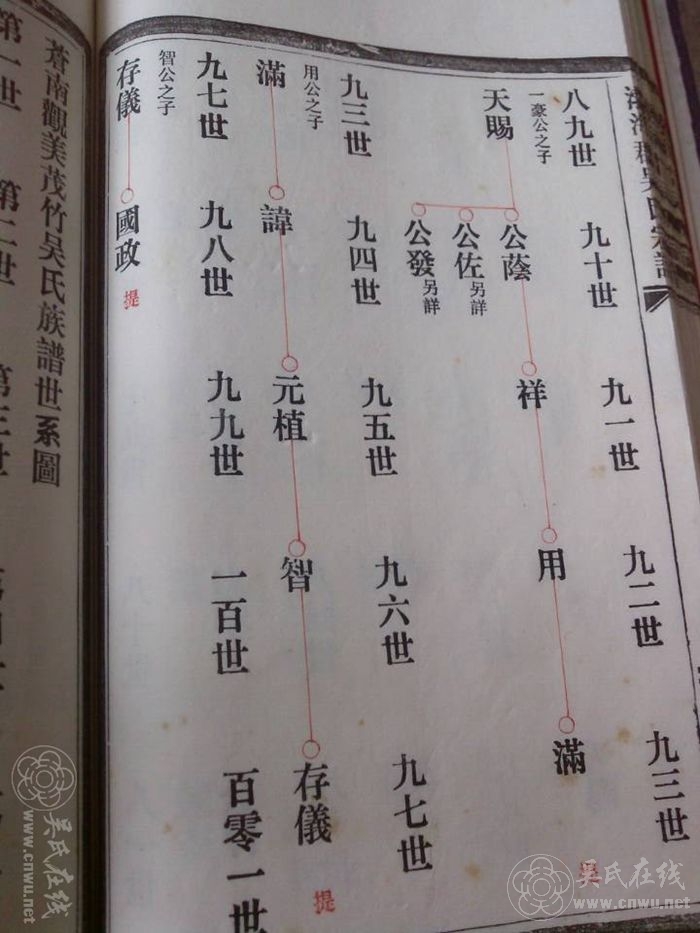 郡吳氏宗譜
八九世 九十世 九一世 九二世 九三世
一豪公之子
天賜 公蔭 祥 用 滿
公佐 另詳
公發 另詳
九三世 九四世 九五世 九六世 九七世
用公之子
滿 諱 元植 智 存儀 提
九七世 九八世 九九世 一百世 百零一世
智公之子
存儀 國政 提
蒼南觀美茂竹吳氏族譜世系圖
第一世 第二世 第三世
吴氏在线
www.cnwu.net
吴氏在线
www.cnwu.net